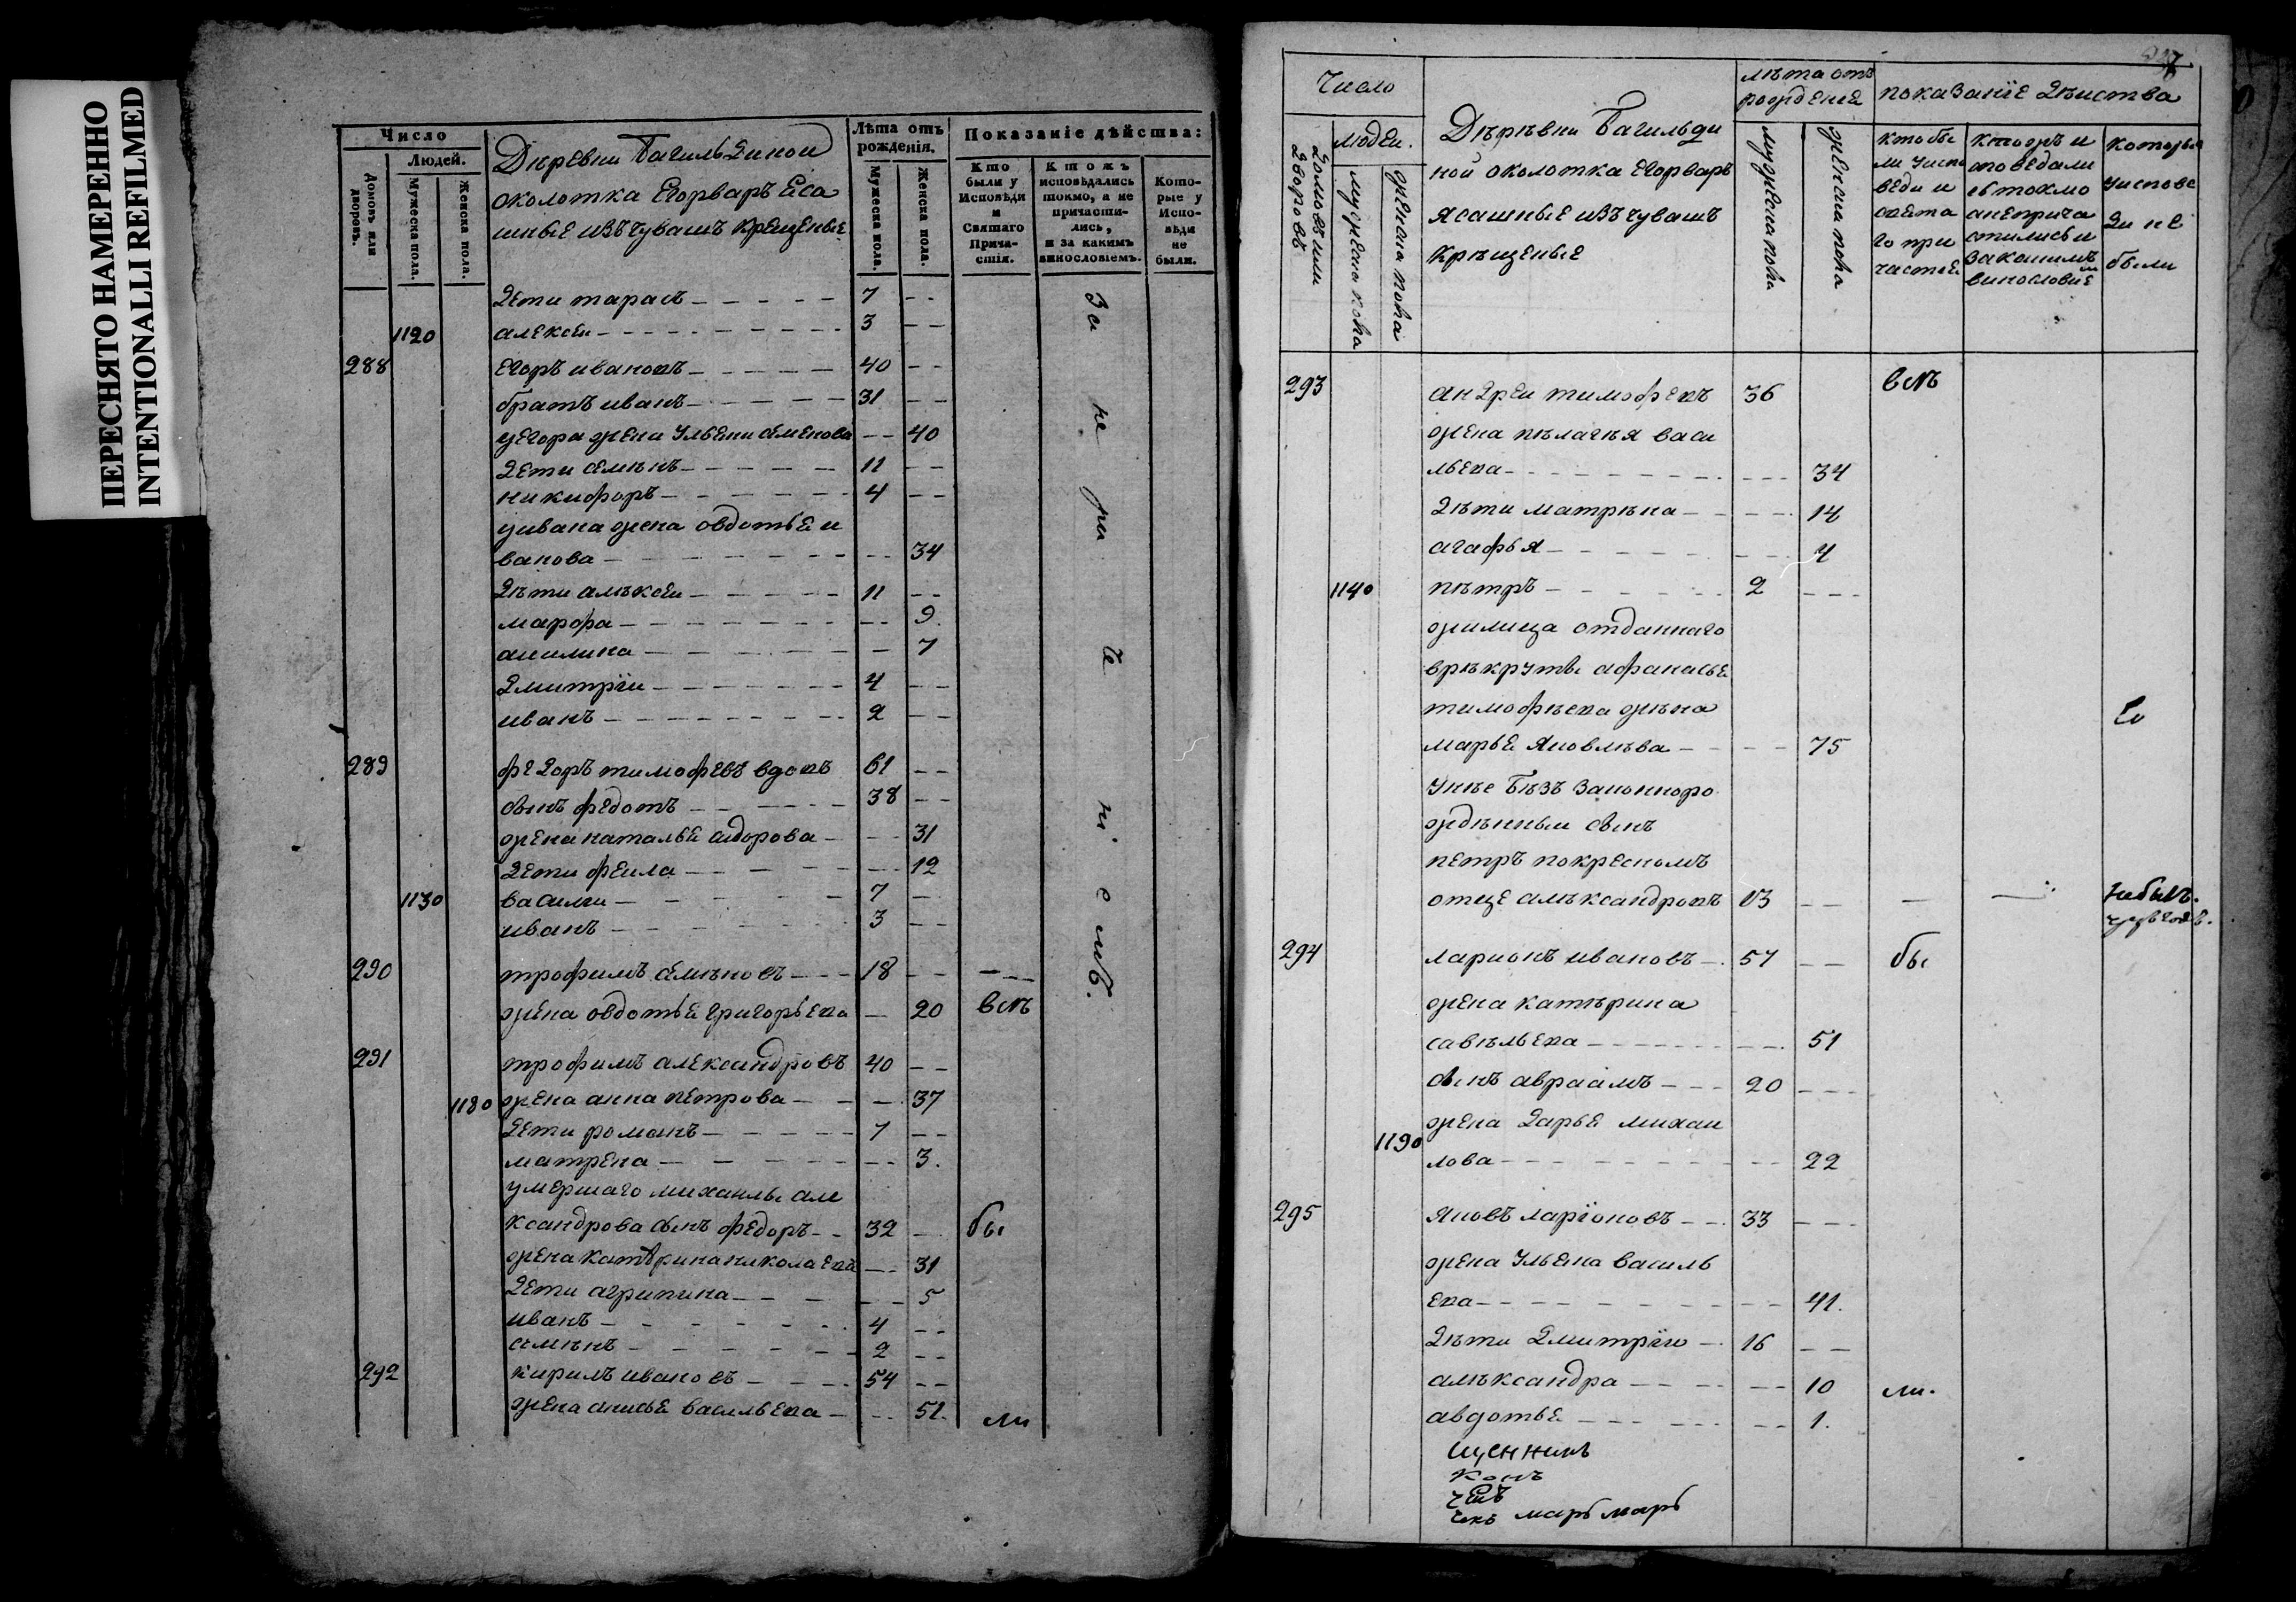 ПЕРЕСНЯТО НАМЕРЕННО
INTENTIONALLI REFILMED
Число
Домовъ или дворовъ.
Людей.
Мужеска пола.
Женска пола.
Деревни Багильдинои
околотка Егорваръ Еса
шные изъ чувашъ крещеные
Лѣта отъ рожденія.
Мужеска пола.
Женска пола.
Показаніе дѣйства:
Кто были у Исповѣди и Святаго Прича-стія.
Ктожъ исповѣдались токмо, а не причасти-лись, и за какимъ винословіемъ.
Кото-рые у Испо-вѣди не были.
Дети тарасъ 7
1120 алексеи 3
288 Егоръ ивановъ 40
братъ иванъ 31
уегора жена Ульяна семенова 40
Дети семѣнъ 11
никифоръ 4
уивана жена овдотье и
ванова 34
Дѣти алѣксеи 11
марфа 9
акилина 7
Дмитрїи 4
иванъ 2
289 федоръ тимофеевъ вдовъ 61
сынъ федотъ 38
жена наталье сидорова 31
Дети фекла 12
1130 василеи 7
иванъ 3
290 трофимъ семѣновъ 18
жена овдотье григорьева 20 всѣ
291 трофимъ александровъ 40
1180 жена анна петрова 37
Дети романъ 7
матрена 3
умершаго михаилы але
ксандрова сынъ федоръ 32 бы
жена катѣрина николаева 31
Дети агрипина 5
иванъ 4
семѣнъ 2
292 кирилъ ивановъ 54
жена анисье васильева 51 ли
Число
Домовъ или Дворовъ
людеи
мужеска пола
женска пола
Дѣрѣвни Багильди
ной околотка Егорваръ
ясашные изъ чувашъ
крѣщеные
лѣта отъ рожденіе
мужеска пола
женска пола
показанїе Дѣиства
кто бы
ли уиспо
веди и
свята
го при
частіе
ктожъ и
споведали
сь токмо
анеприча
стились и
закакимъ
винословие
которые
уиспове
ди не
были
293 андреи тимофеевъ 36 всѣ
жена пѣлагѣя васи
льева 34
Дѣти матрѣна 14
агафья 4
1140 пѣтръ 2
жилища отданнаго
врѣкруты афанасье
тимофѣева жѣна
марье яковлѣва 75
Унѣе бѣзъ законноро
ждѣнныи сынъ
петръ покресномъ
отце алѣксандровъ 13 небылъ.
294 ларионъ ивановъ 57 бы
жена катѣрина
савѣльева 51
сынъ авраамъ 20
1190 жена Дарье михаи
лова 22
295 яковъ ларїоновъ 33
жена Ульяна василь
ева 41.
Дѣти Дмитрїи 16
алѣксандра 10 ли.
авдотье 1.
щенникъ
конъ